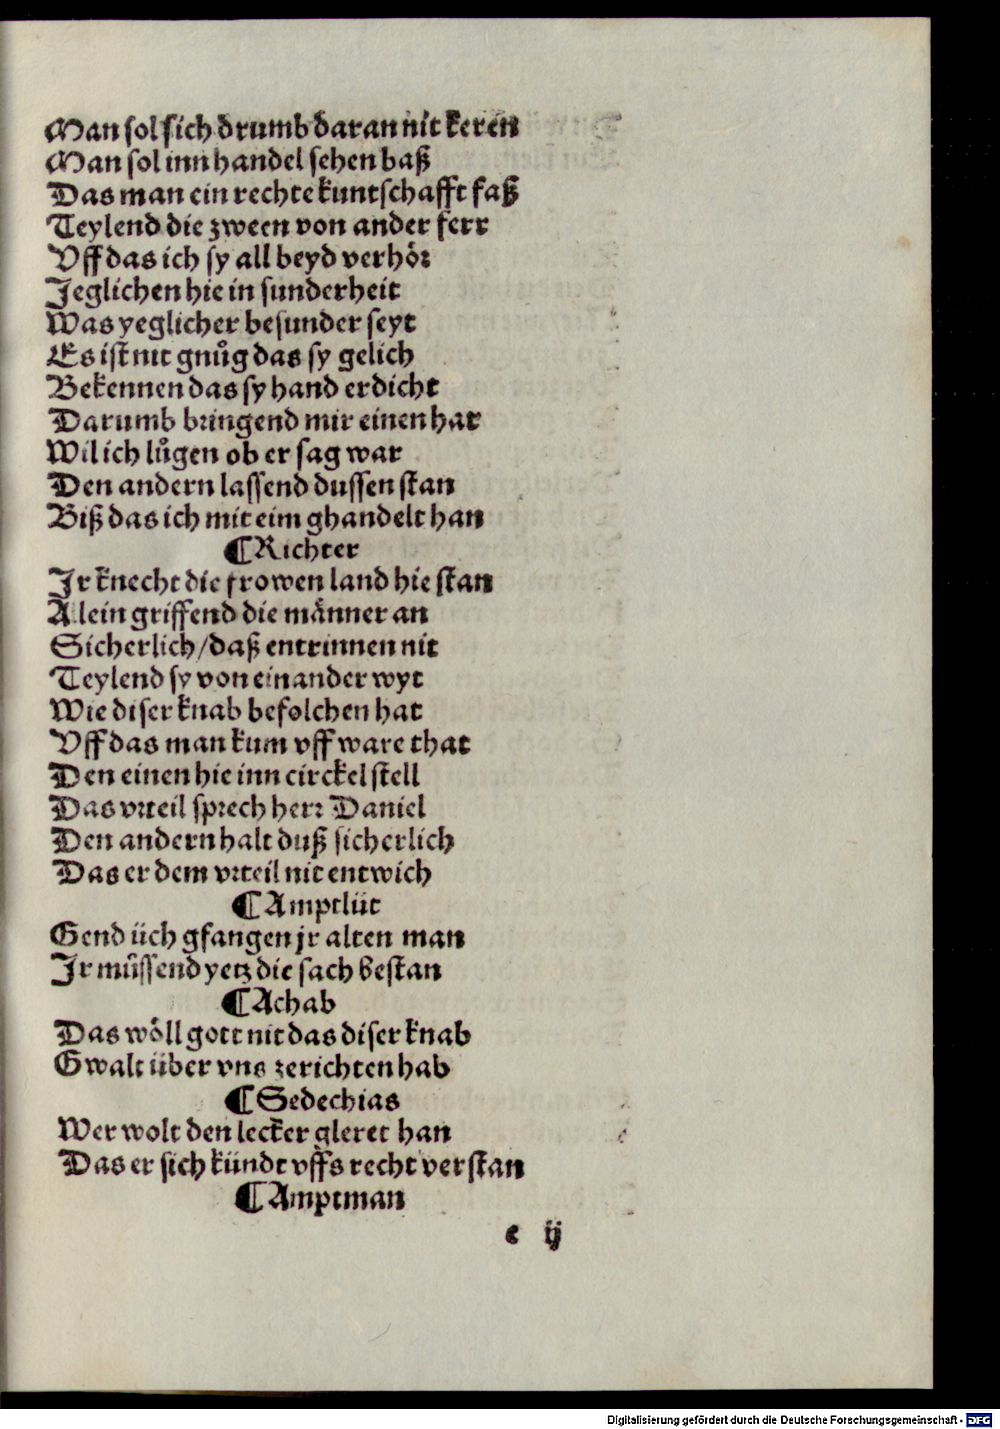 Man sol sich drumb daran nit keren
Man sol inn handel sehen baß
Das man ein rechte kuntschafft faß
Teylend die zween von ander ferr
Vff das ich sy all beyd verhoͤr
Jeglichen hie in sunderheit
Was yeglicher besunder seyt
Es ist nit gnuͦg das sy gelich
Bekennen das sy hand erdicht
Darumb bringend mir einen har
Wil ich luͦgen ob er sag war
Den andern lassend dussen stan
Biß das ich mit eim ghandelt han
¶ Richter
Jr knecht die frowen land hie stan
Allein griffend die maͤnner an
Sicherlich/daß entrinnen nit
Teylend sy von einander wyt
Wie diser knab befolchen hat
Vff das man kum vff ware that
Den einen hie inn circkel stell
Das vrteil sprech herr Daniel
Den andern halt duß sicherlich
Das er dem vrteil nit entwich
¶ Amptlüt
Gend üch gfangen jr alten man
Jr muͤssend yetz die sach bestan
¶ Achab
Das woͤll gott nit das diser knab
Gwalt über vns zerichten hab
¶ Sedechias
Wer wolt den lecker gleret han
Das er sich kündt vffs recht verstan
¶ Amptman
e ij
Digitalisierung gefördert durch die Deutsche Forschungsgemeinschaft - DFG